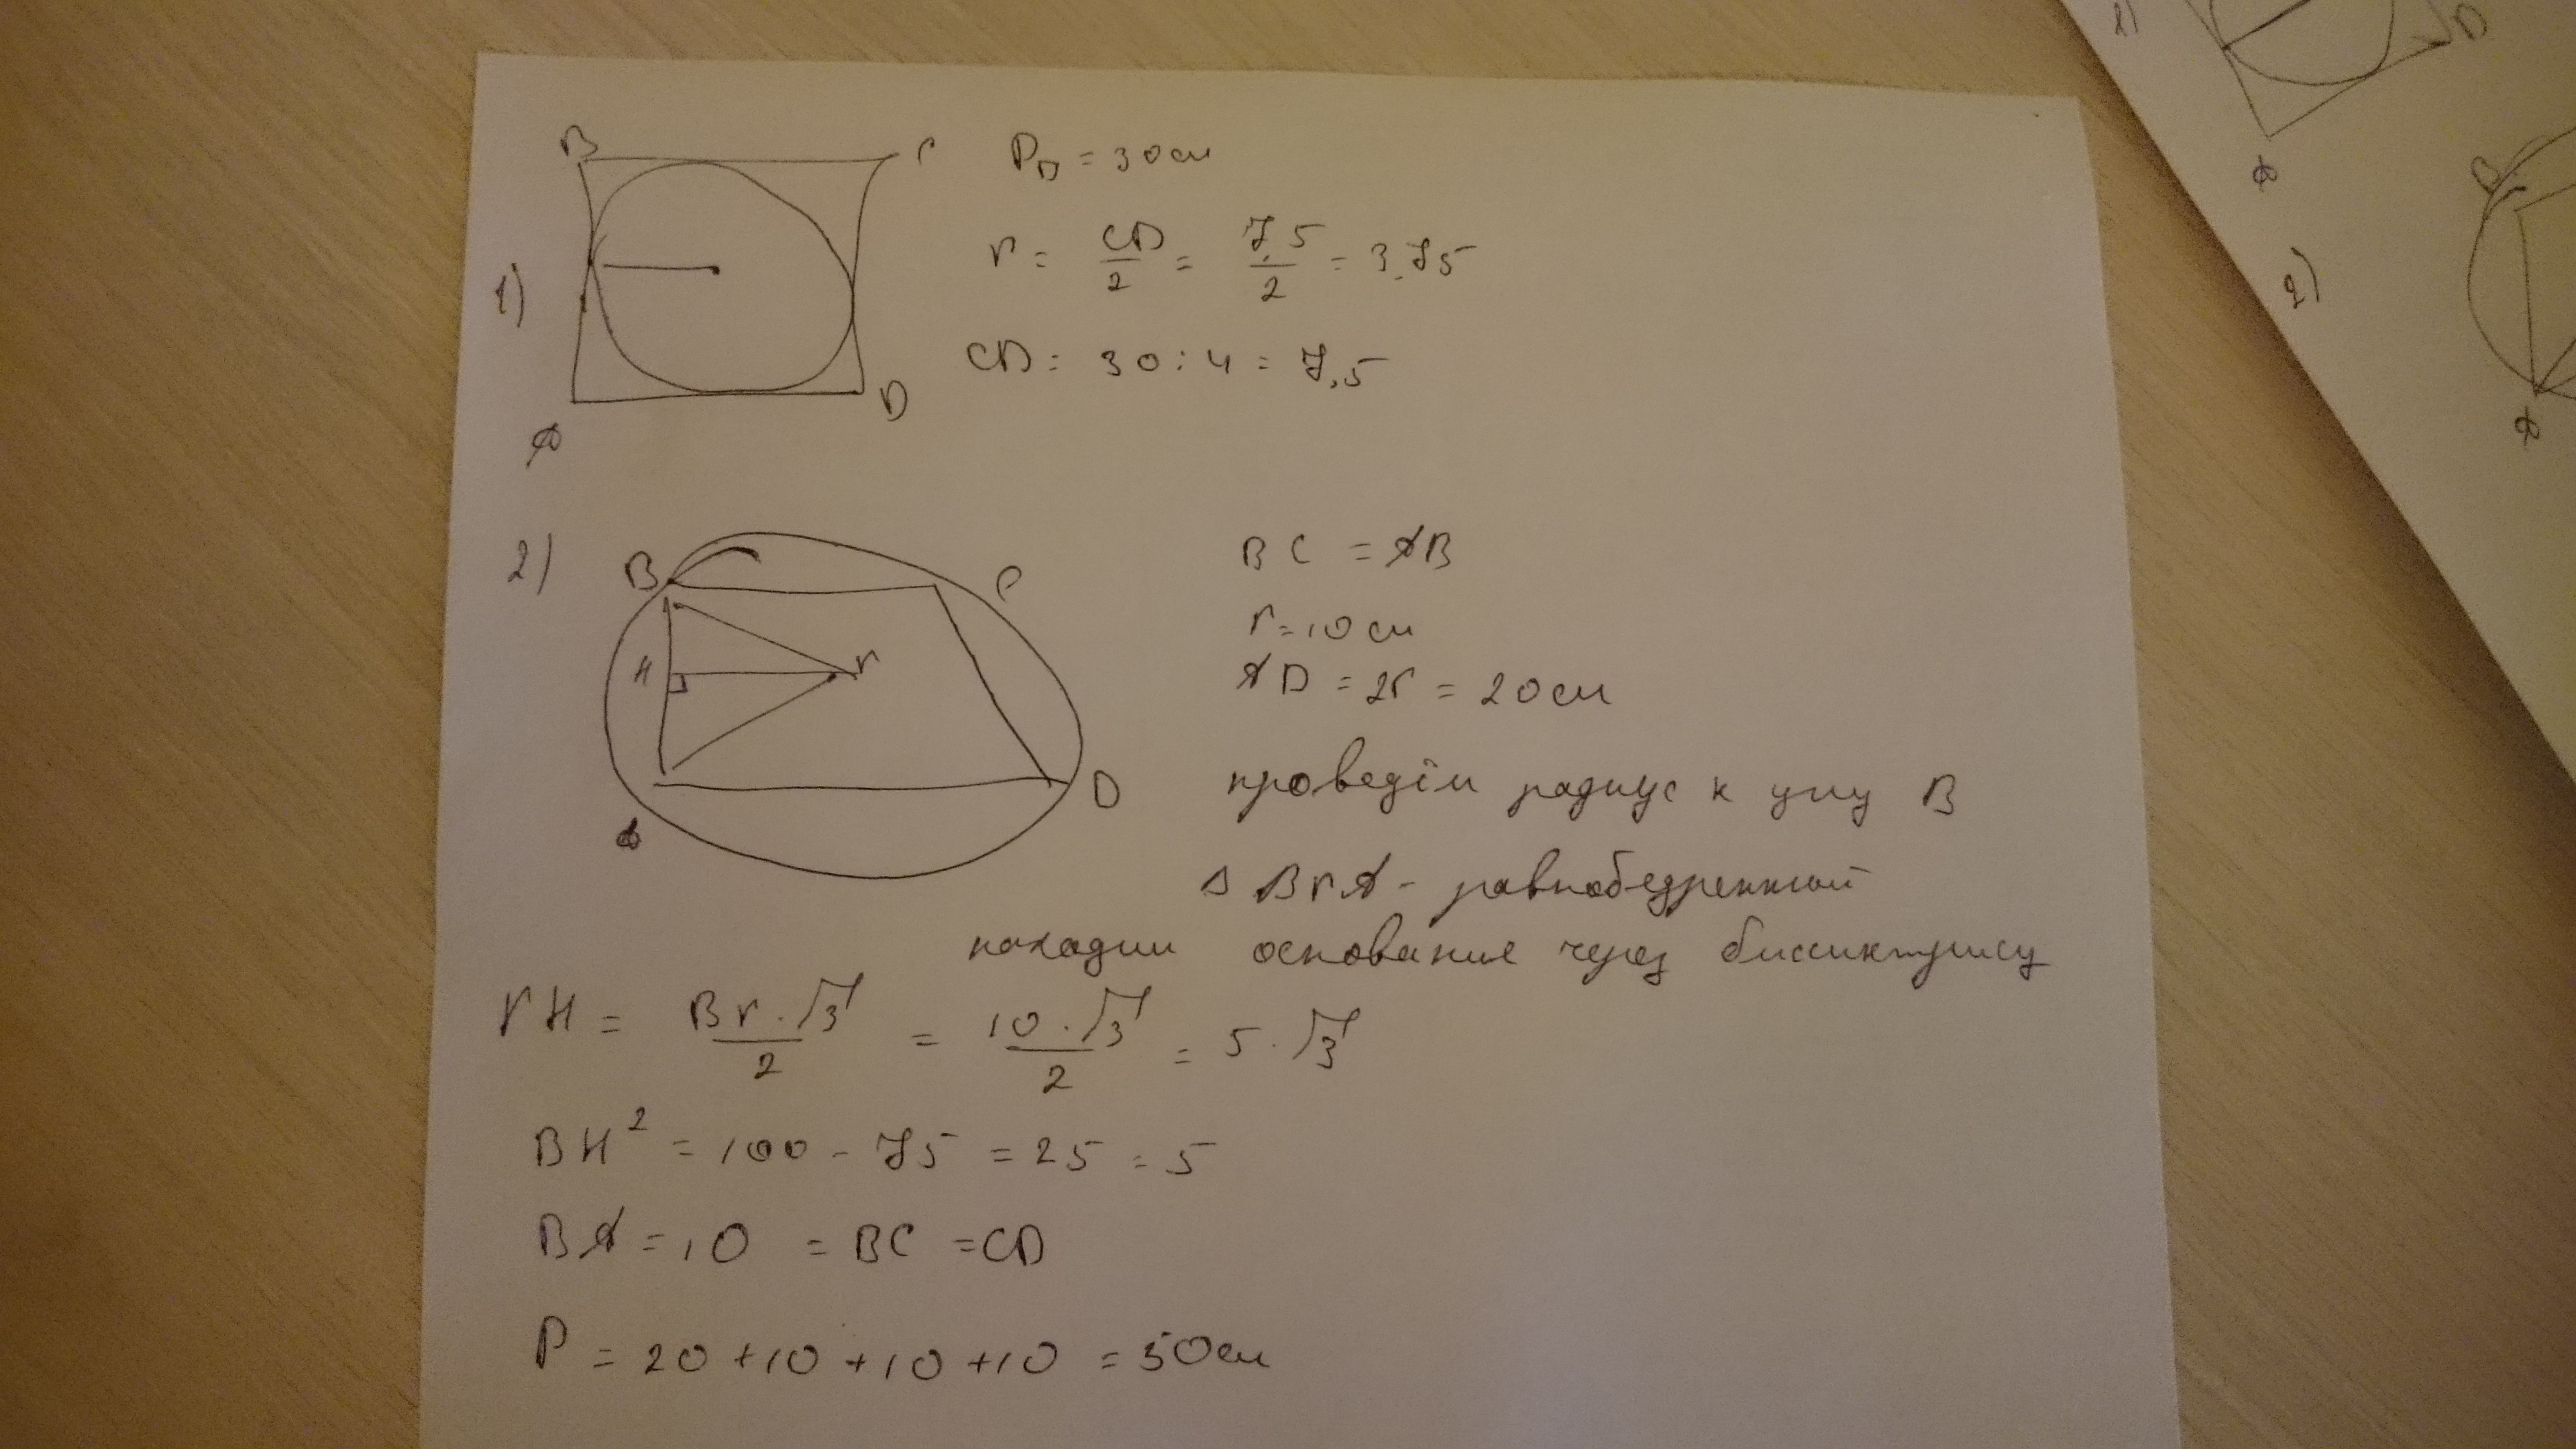 1)
B
C
A
D
P□ = 30 см
r = CD/2 = 7,5/2 = 3.75
CD = 30 : 4 = 7,5
2)
B
C
H
r
A
D
BC = AB
r = 10 см
AD = 2r = 20 см
проведём радиус к углу B
Δ BrA - равнобедренный
находим основание через биссиктрису
rH = Br · √3/2 = 10 · √3/2 = 5 · √3
BH² = 100 - 75 = 25 = 5
BA = 10 = BC = CD
P = 20 + 10 + 10 + 10 = 50 см
1)
D
A
2)
B
A